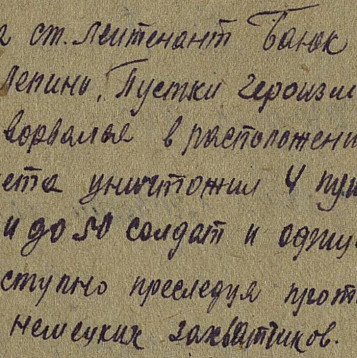 ст. лейтенант Банюк
Лепино, Пустки героизм
ворвался в расположени
ета уничтожил 4 пуш
и до 50 солдат и
ступно преследуя прот
немецких захватчиков.